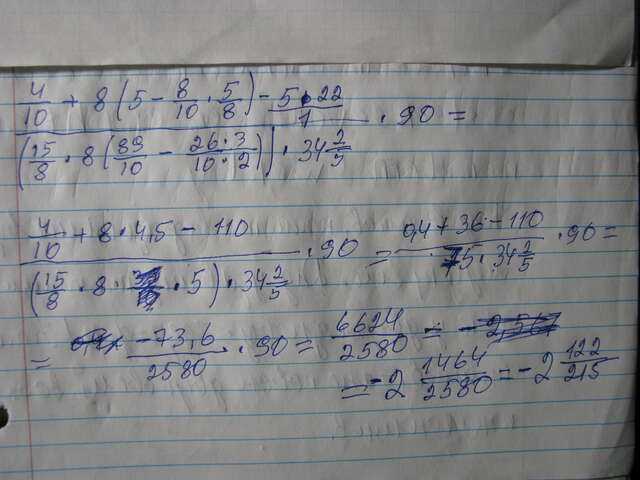 4/10 + 8(5 - 8/10 · 5/8) - 5·22/1
(15/8 · 8(89/10 - 26·3/10·2)) · 34 2/5 · 90 =
4/10 + 8·4,5 - 110 0,4 + 36 - 110
(15/8 · 8 · 5) · 34 2/5 · 90 = 75 · 34 2/5 · 90 =
= -73,6/2580 · 90 = 6624/2580 = 
= -2 1464/2580 = -2 122/215